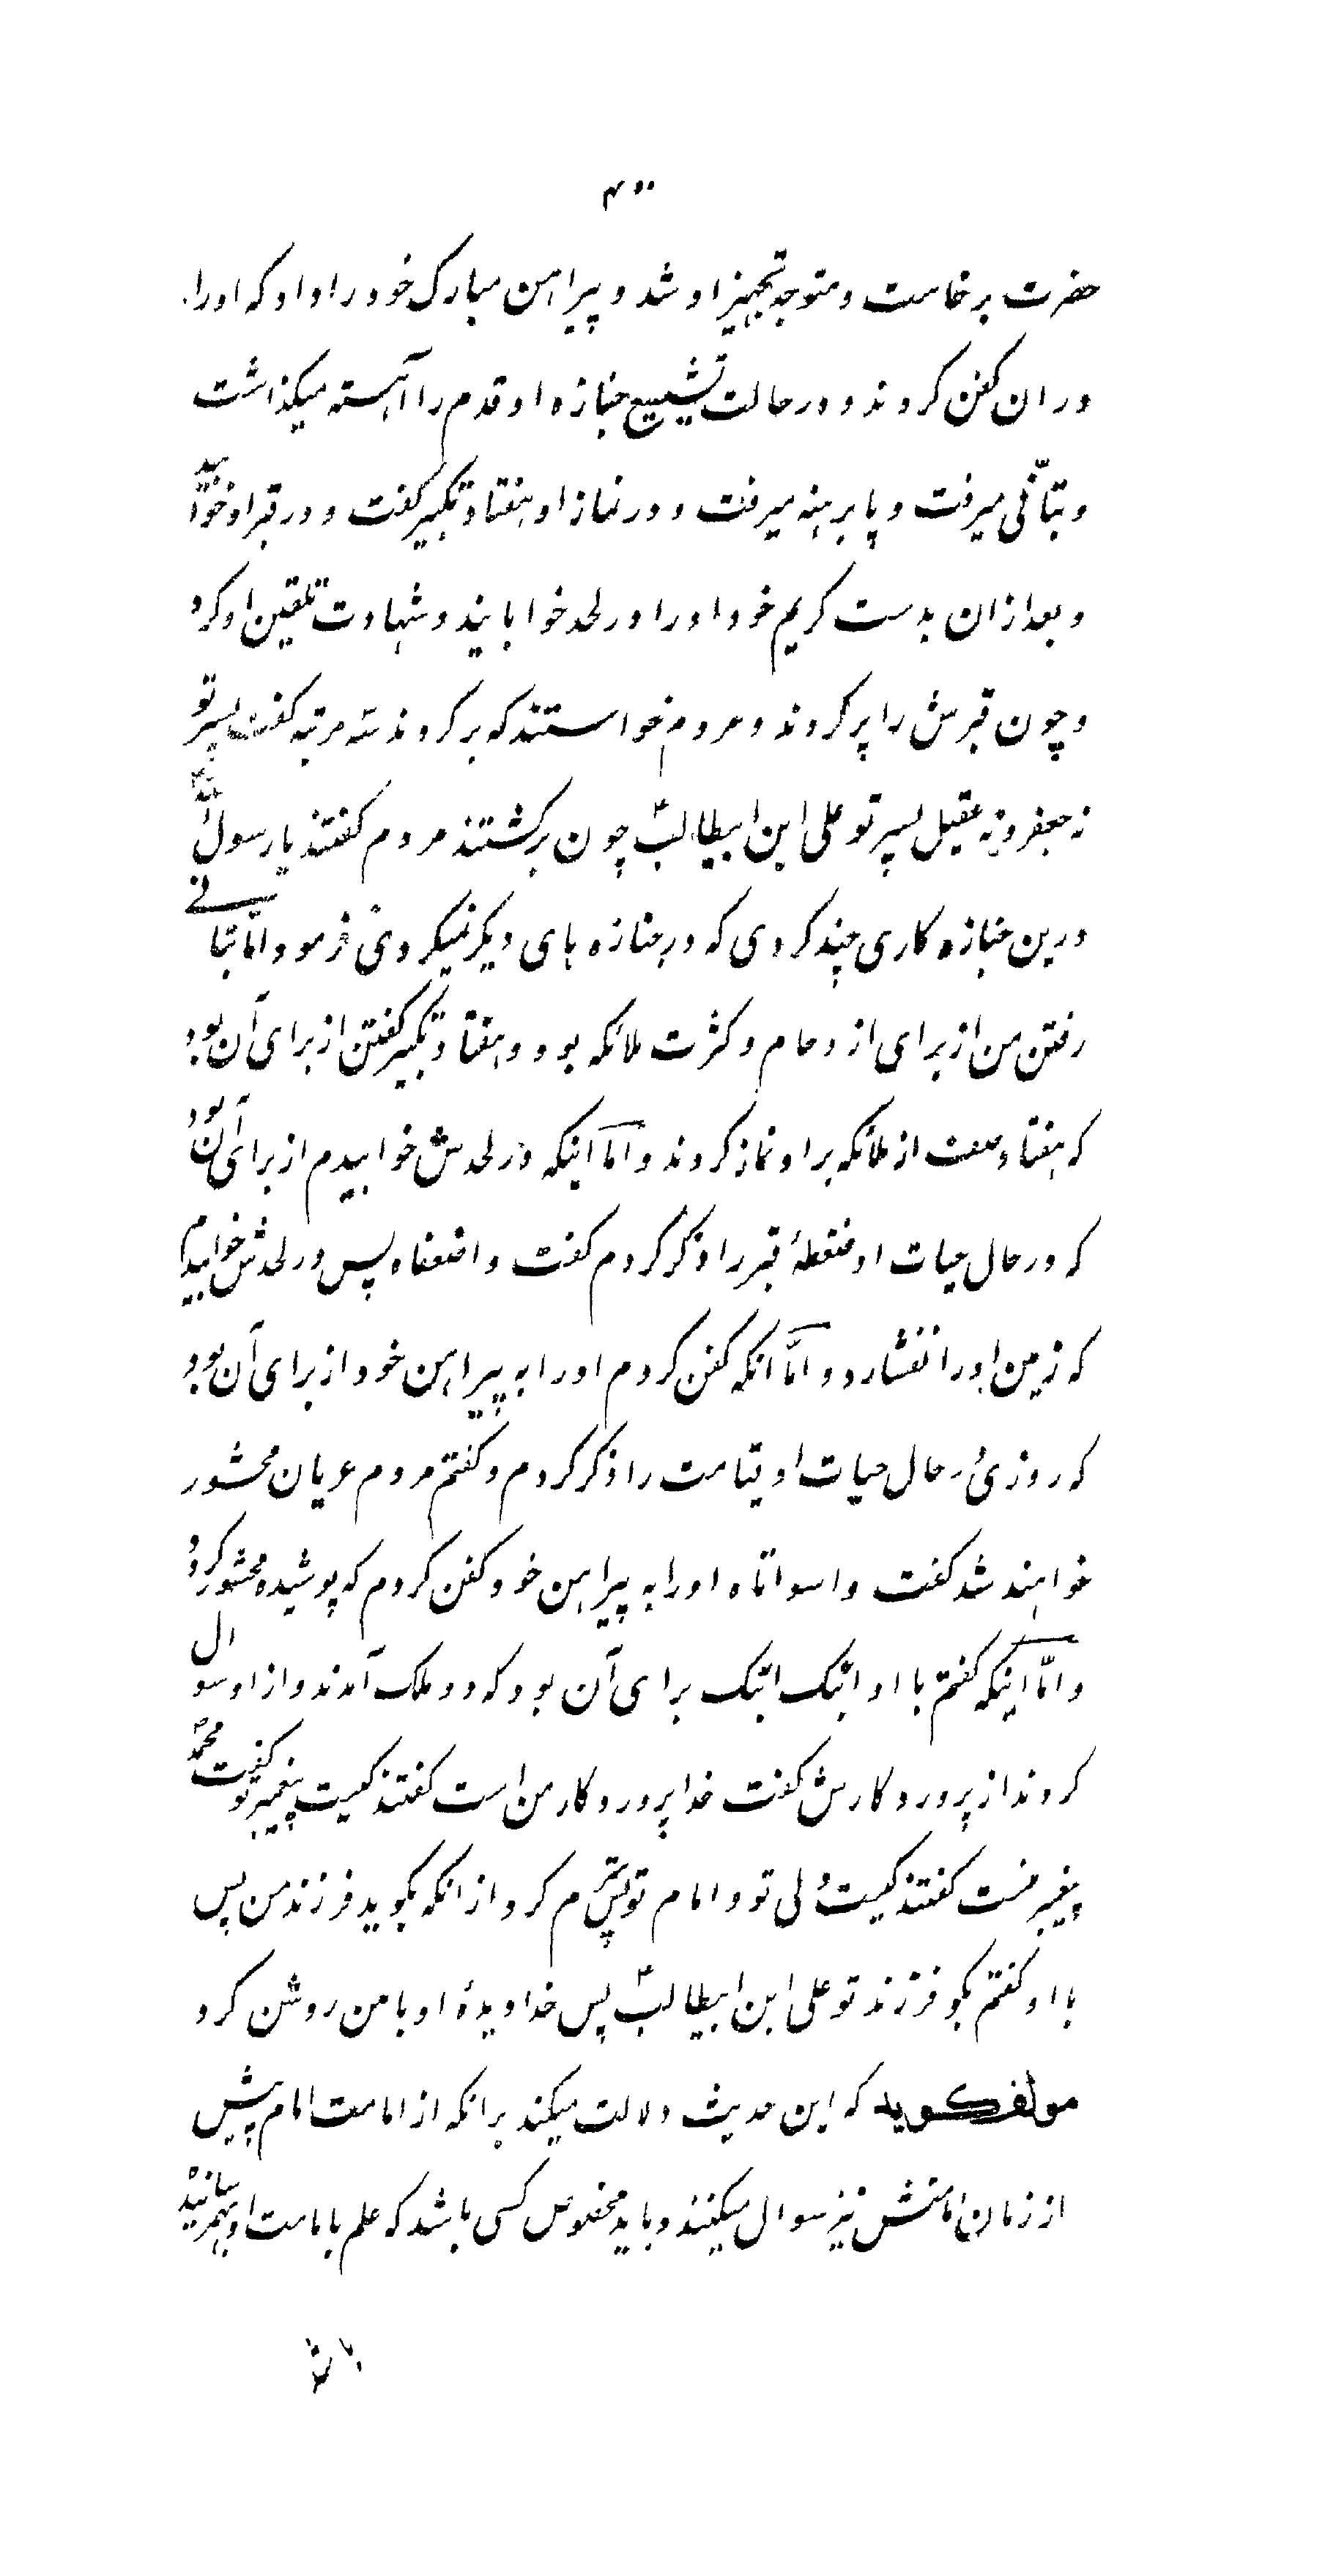 ۴۰۰
حضرت برخاست و متوجه تجهیز او شد و پیراهن مبارک خود را داد که او را
در ان کفن کردند و در حالت تشییع جنازه او قدم را آهسته میگذاشت
و بتأنّی میرفت و پا برهنه میرفت و در نماز او هفتاد تکبیر کفت و در قبر او خوابید
و بعد ازان بدست کریم خود او را در لحد خوابانید و شهادت تلقین او کرد
و چون قبرش را پر کردند و مردم خواستند که برکردند سه مرتبه کفت پسر تو
نه جعفر و نه عقیل پسر تو علی ابن ابیطالبؑ چون برکشتند مردم کفتند یا رسول الله
درین جنازه کاری چند کردی که در جنازه های دیکر نمیکردی فرمود امّا بتأنی
رفتن من از برای ازدحام و کثرت ملائکه بود و هفتاد تکبیر کفتن از برای آن بود
که هفتاد صف از ملائکه بر او نماز کردند و امّا اینکه در لحدش خوابیدم از برای آن بود
که در حال حیات او ضغطهٔ قبر را ذکر کردم کفت واضعفاه پس در لحدش خوابیدم
که زمین او را نفشارد و امّا انکه کفن کردم او را به پیراهن خود از برای آن بود
که روزی در حال حیات او قیامت را ذکر کردم و کفتم مردم عریان محشور
خواهند شد کفت واسوأتاه او را به پیراهن خود کفن کردم که پوشیده محشور کردد
و امّا اینکه کفتم با او ابنک ابنک برای آن بود که دو ملک آمدند و از او سوال
کردند از پروردکارش کفت خدا پروردکار من است کفتند کیست پیغمبر تو کفت محمدؐ
پیغمبر منست کفتند کیست ولی تو و امام تو پس شرم کرد از انکه بکوید فرزند من پس
با او کفتم بکو فرزند تو علی ابن ابیطالبؑ پس خدا دیدهٔ او با من روشن کرد
مولف کوید که این حدیث دلالت میکند برانکه از امامت امام پیش
از زمان امامتش نیز سوال میکنند و باید مخصوص کسی باشد که علم بامامت او بهمرسانیده